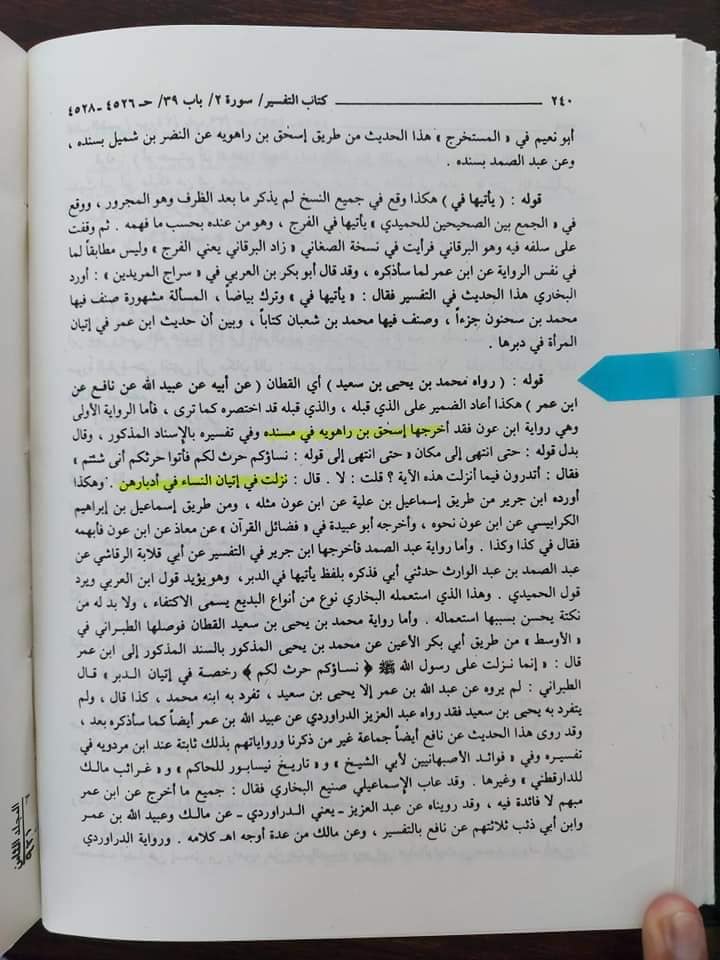 ٢٤٠ ــــــــــ كتاب التفسير/ سورة ٢/ باب ٣٩/ حـ ٤٥٢٦ ـ ٤٥٢٨
أبو نعيم في « المستخرج » هذا الحديث من طريق إسحق بن راهويه عن النضر بن شميل بسنده ،
وعن عبد الصمد بسنده .
قوله : ( يأتيها في ) هكذا وقع في جميع النسخ لم يذكر ما بعد الظرف وهو المجرور ، ووقع
في « الجمع بين الصحيحين للحميدي » يأتيها في الفرج ، وهو من عنده بحسب ما فهمه . ثم وقفت
على سلفه فيه وهو البرقاني فرأيت في نسخة الصغاني « زاد البرقاني يعني الفرج » وليس مطابقاً لما
في نفس الرواية عن ابن عمر لما سأذكره ، وقد قال أبو بكر بن العربي في « سراج المريدين » : أورد
البخاري هذا الحديث في التفسير فقال : « يأتيها في » وترك بياضاً ، المسألة مشهورة صنف فيها
محمد بن سحنون جزءاً ، وصنف فيها محمد بن شعبان كتاباً ، وبين أن حديث ابن عمر في إتيان
المرأة في دبرها .
قوله : ( رواه محمد بن يحيى بن سعيد ) أي القطان ( عن أبيه عن عبيد الله عن نافع عن
ابن عمر ) هكذا أعاد الضمير على الذي قبله ، والذي قبله قد اختصره كما ترى ، فأما الرواية الأولى
وهي رواية ابن عون فقد أخرجها إسحق بن راهويه في مسنده وفي تفسيره بالإسناد المذكور ، وقال
بدل قوله : حتى انتهى إلى مكان « حتى انتهى إلى قوله : نساؤكم حرث لكم فأتوا حرثكم أنى شئتم »
فقال : أتدرون فيما أنزلت هذه الآية ؟ قلت : لا . قال : نزلت في إتيان النساء في أدبارهن . وهكذا
أورده ابن جرير من طريق إسماعيل بن علية عن ابن عون مثله ، ومن طريق إسماعيل بن إبراهيم
الكرابيسي عن ابن عون نحوه ، وأخرجه أبو عبيدة في « فضائل القرآن » عن معاذ عن ابن عون فأبهمه
فقال في كذا وكذا . وأما رواية عبد الصمد فأخرجها ابن جرير في التفسير عن أبي قلابة الرقاشي عن
عبد الصمد بن عبد الوارث حدثني أبي فذكره بلفظ يأتيها في الدبر ، وهو يؤيد قول ابن العربي ويرد
قول الحميدي . وهذا الذي استعمله البخاري نوع من أنواع البديع يسمى الاكتفاء ، ولا بد له من
نكتة يحسن بسببها استعماله . وأما رواية محمد بن يحيى بن سعيد القطان فوصلها الطبراني في
« الأوسط » من طريق أبي بكر الأعين عن محمد بن يحيى المذكور بالسند المذكور إلى ابن عمر
قال : « إنما نزلت على رسول الله ﷺ ﴿ نساؤكم حرث لكم ﴾ رخصة في إتيان الدبر » قال
الطبراني : لم يروه عن عبد الله بن عمر إلا يحيى بن سعيد ، تفرد به ابنه محمد ، كذا قال ، ولم
يتفرد به يحيى بن سعيد فقد رواه عبد العزيز الدراوردي عن عبيد الله بن عمر أيضاً كما سأذكره بعد ،
وقد روى هذا الحديث عن نافع أيضاً جماعة غير من ذكرنا ورواياتهم بذلك ثابتة عند ابن مردويه في
تفسيره وفي « فوائد الأصبهانيين لأبي الشيخ » و « تاريخ نيسابور للحاكم » و « غرائب مالك
للدارقطني » وغيرها . وقد عاب الإسماعيلي صنيع البخاري فقال : جميع ما أخرج عن ابن عمر
مبهم لا فائدة فيه ، وقد رويناه عن عبد العزيز ـ يعني الدراوردي ـ عن مالك وعبيد الله بن عمر
وابن أبي ذئب ثلاثتهم عن نافع بالتفسير ، وعن مالك من عدة أوجه اهـ كلامه . ورواية الدراوردي
المجلد الثامن